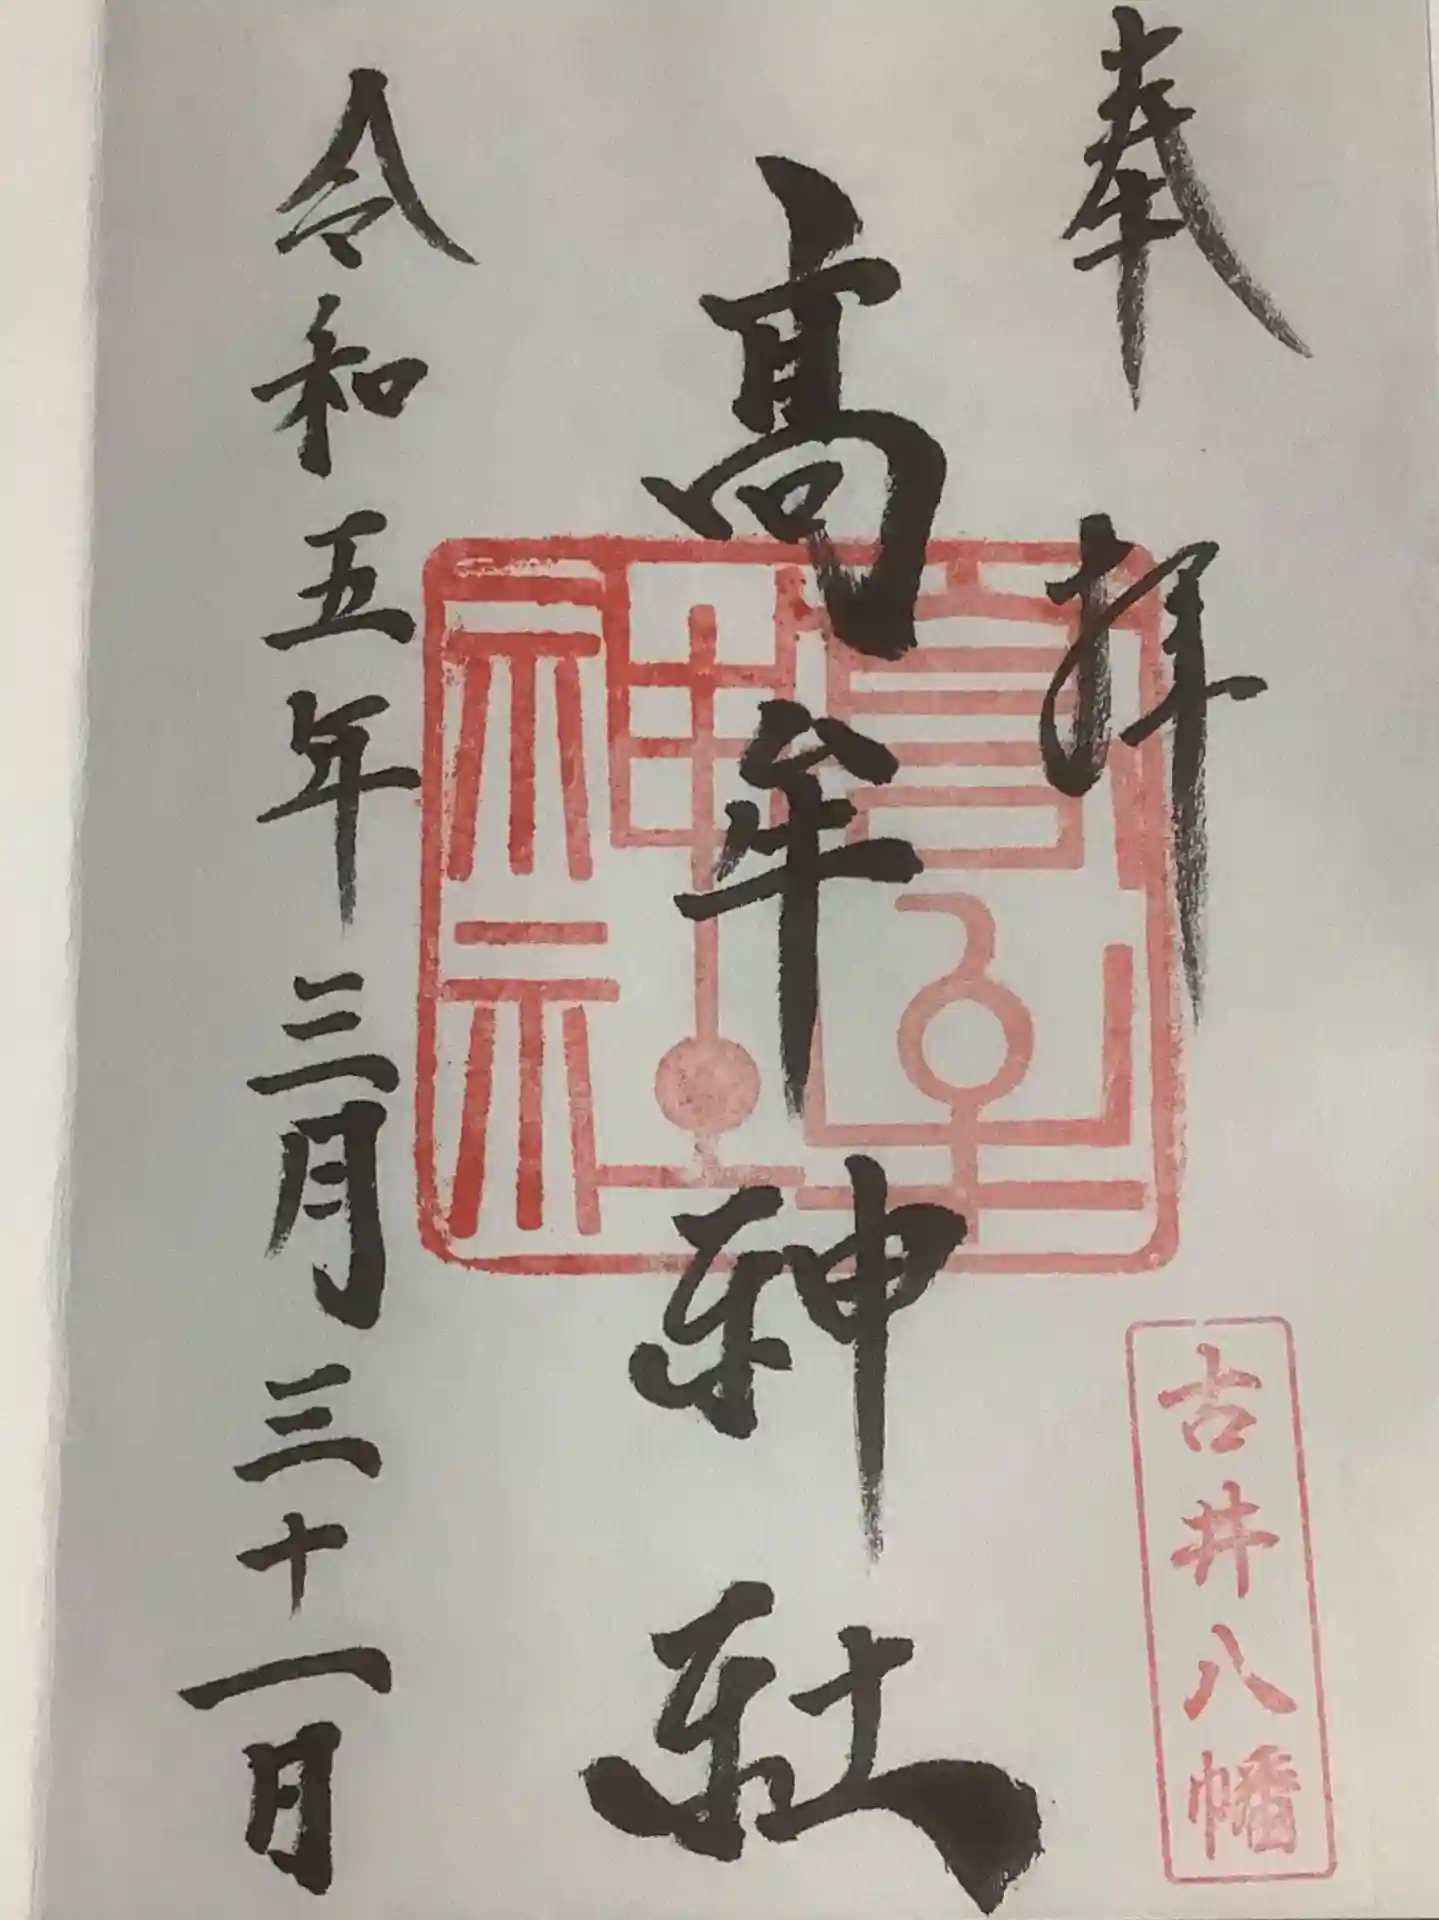 奉拝
古井八幡
髙牟神社
高牟神社
令和五年三月三十一日